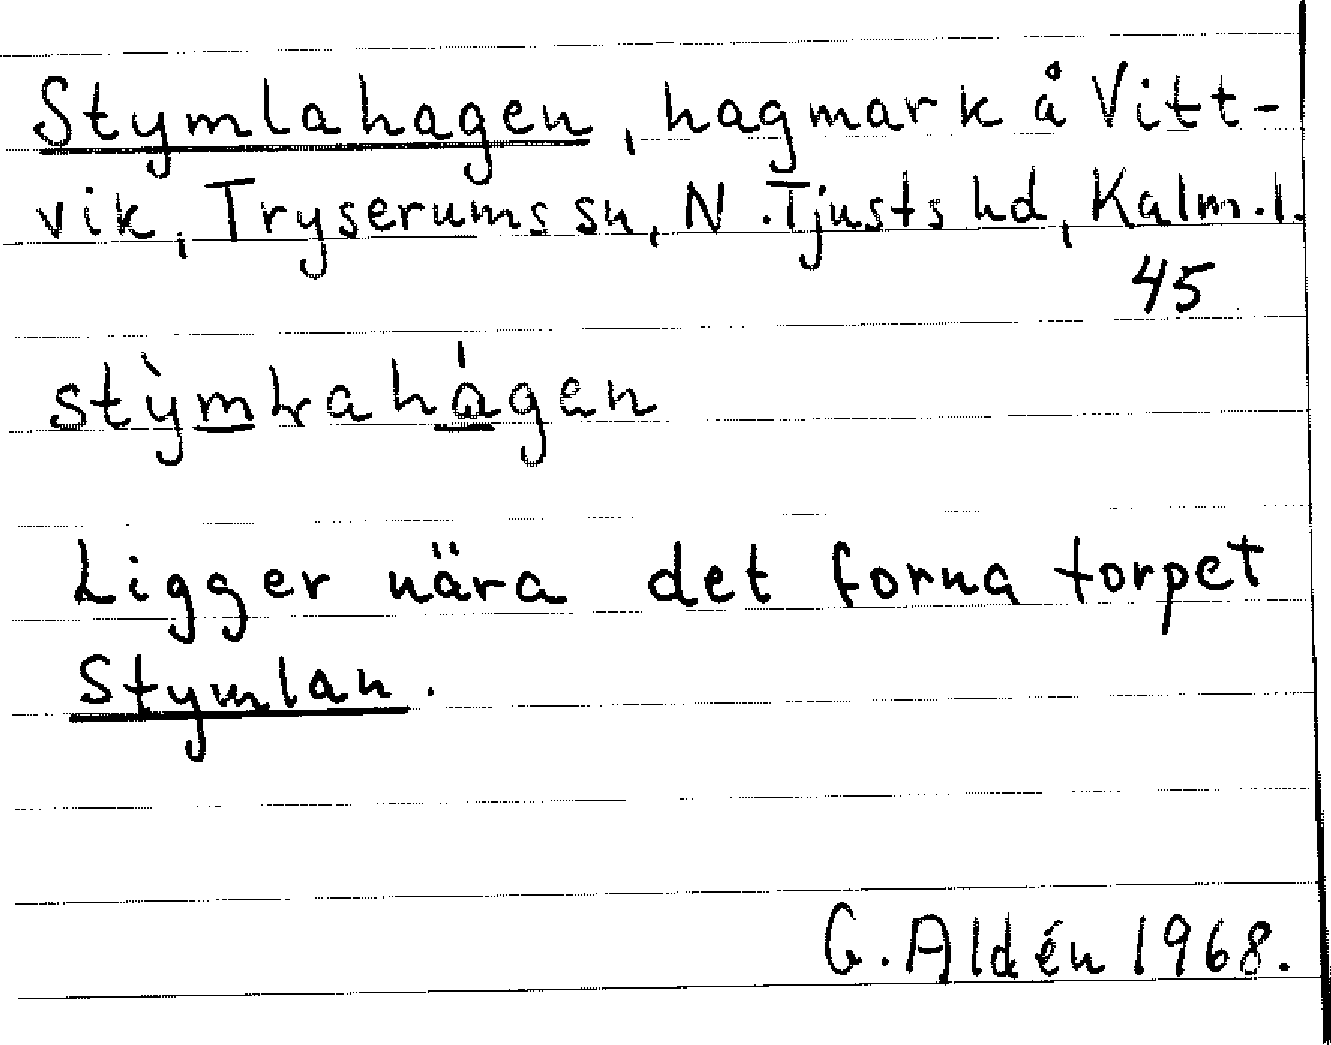 Stymlahagen, hagmark å Vitt-
vik, Tryserums sn, N. Tjusts hd, Kalm. l.
45
stỳmɫahágen
Ligger nära det forna torpet
Stymlan.
G. Aldén 1968.